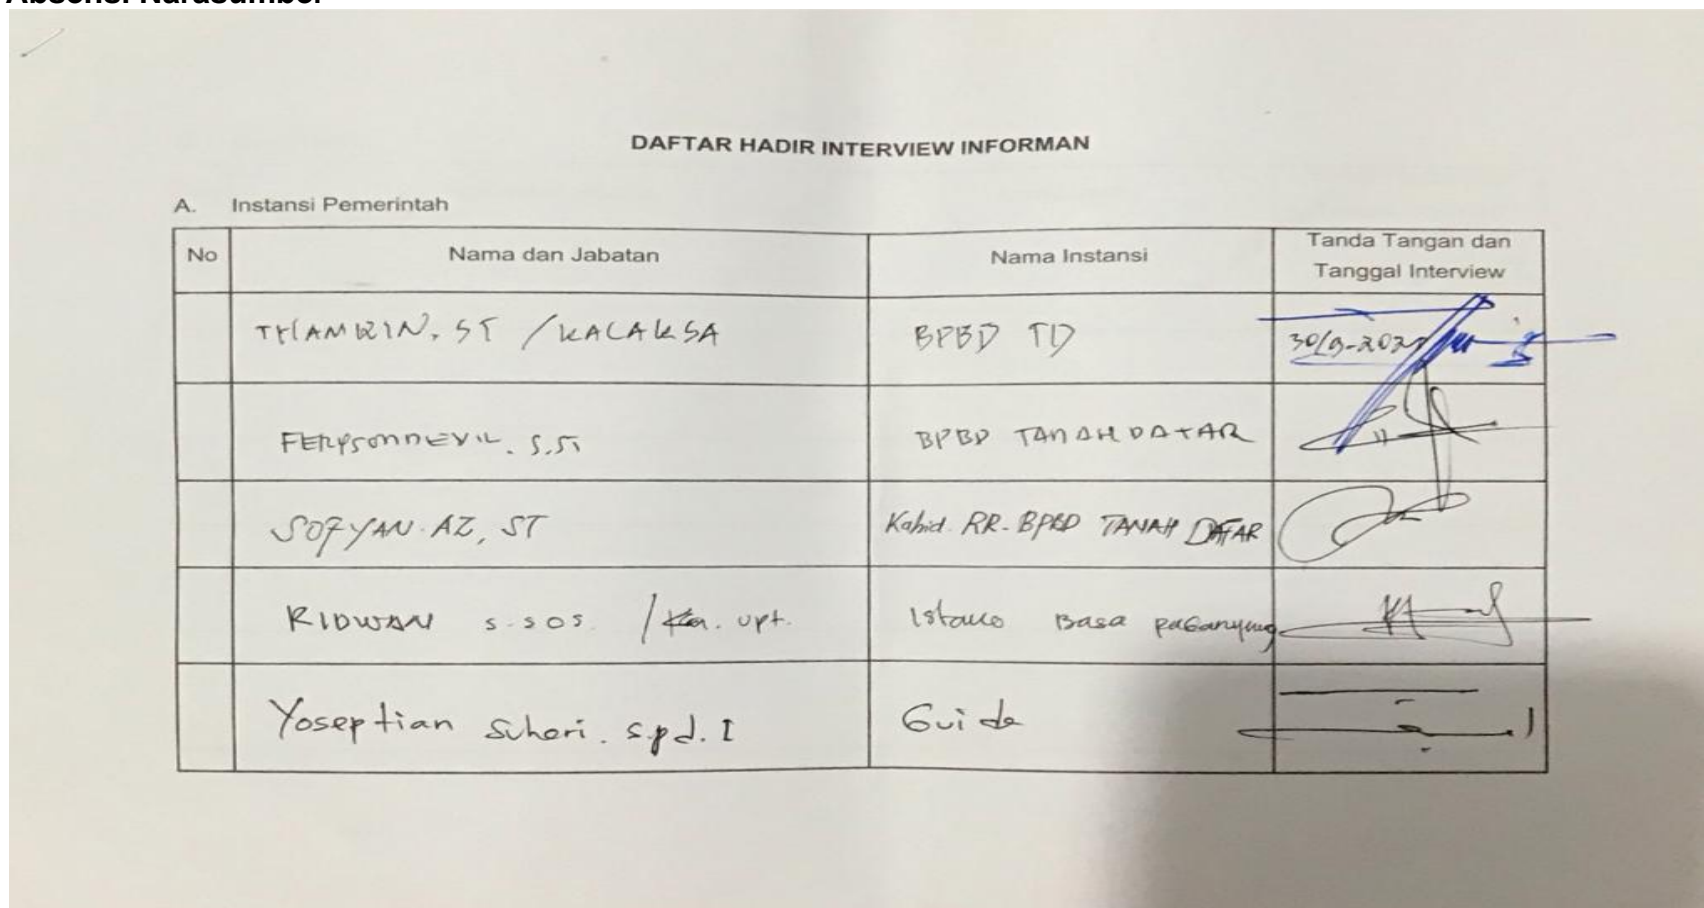 Absensi Narasumber
DAFTAR HADIR INTERVIEW INFORMAN
A. Instansi Pemerintah
No Nama dan Jabatan Nama Instansi Tanda Tangan dan Tanggal Interview
THAMRIN, ST / KALAKSA BPBD TD 30/9-202
S.Si BPBD TANAH DATAR
SOFYAN. AZ, ST Kabid. RR. BPBD TANAH DATAR
RIDWAN S.SOS. / Ka. upt. Istano Basa pagaruyung
Yoseptian Suheri. s.pd. I Guide